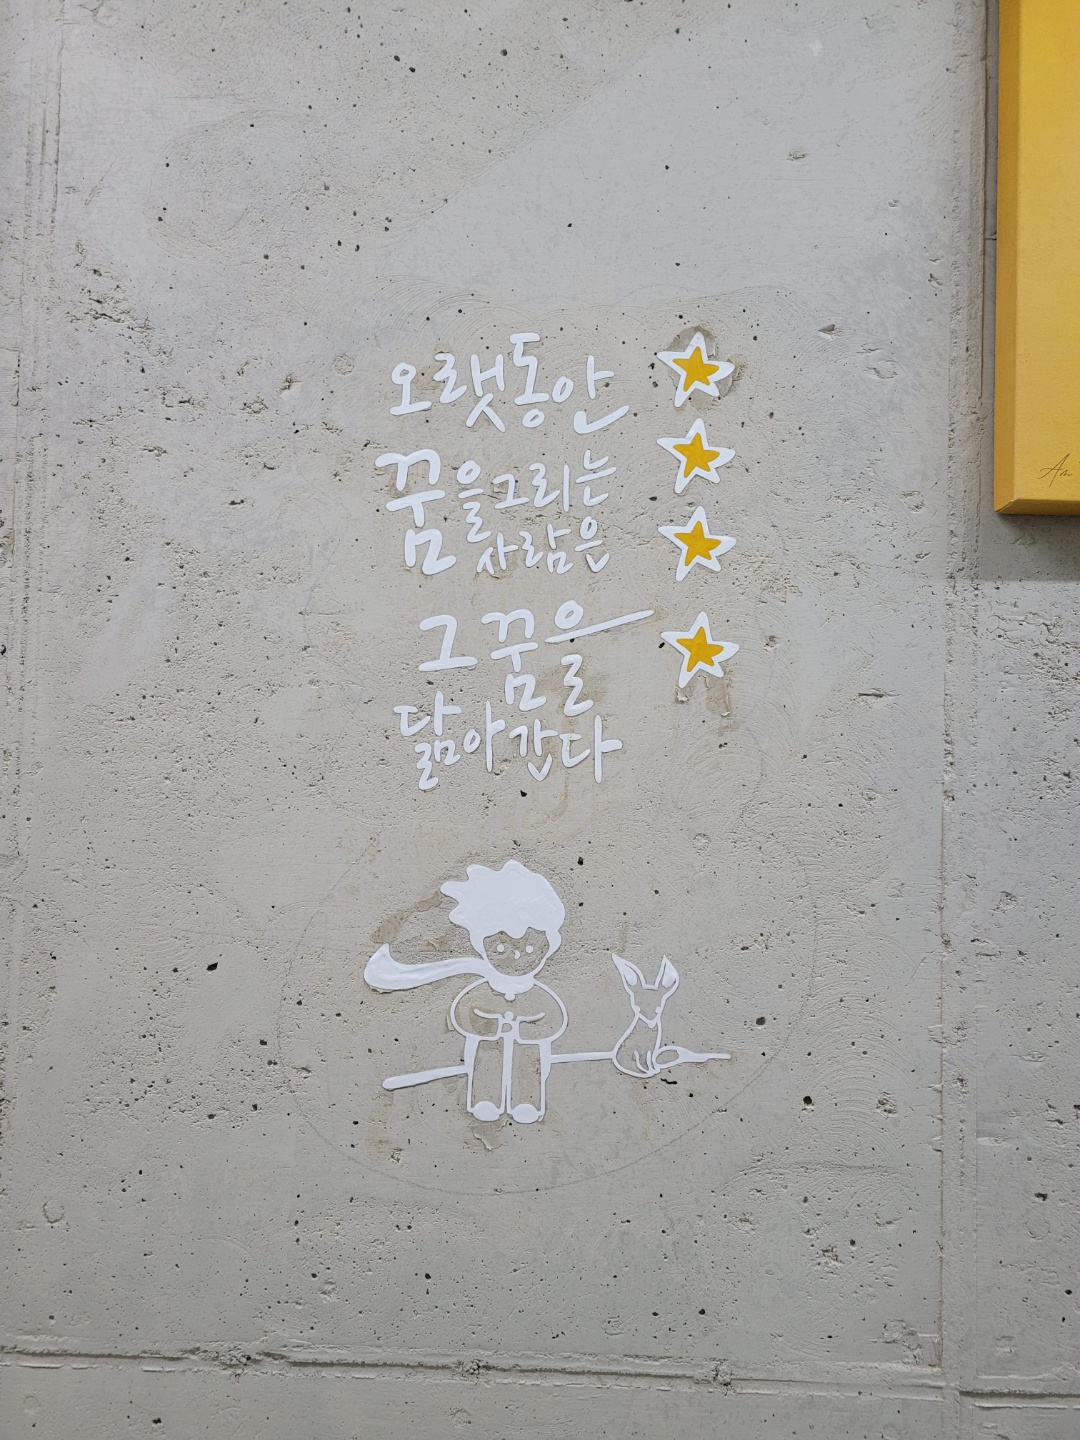 오랫동안
꿈을그리는
사람은
그 꿈을
닮아간다